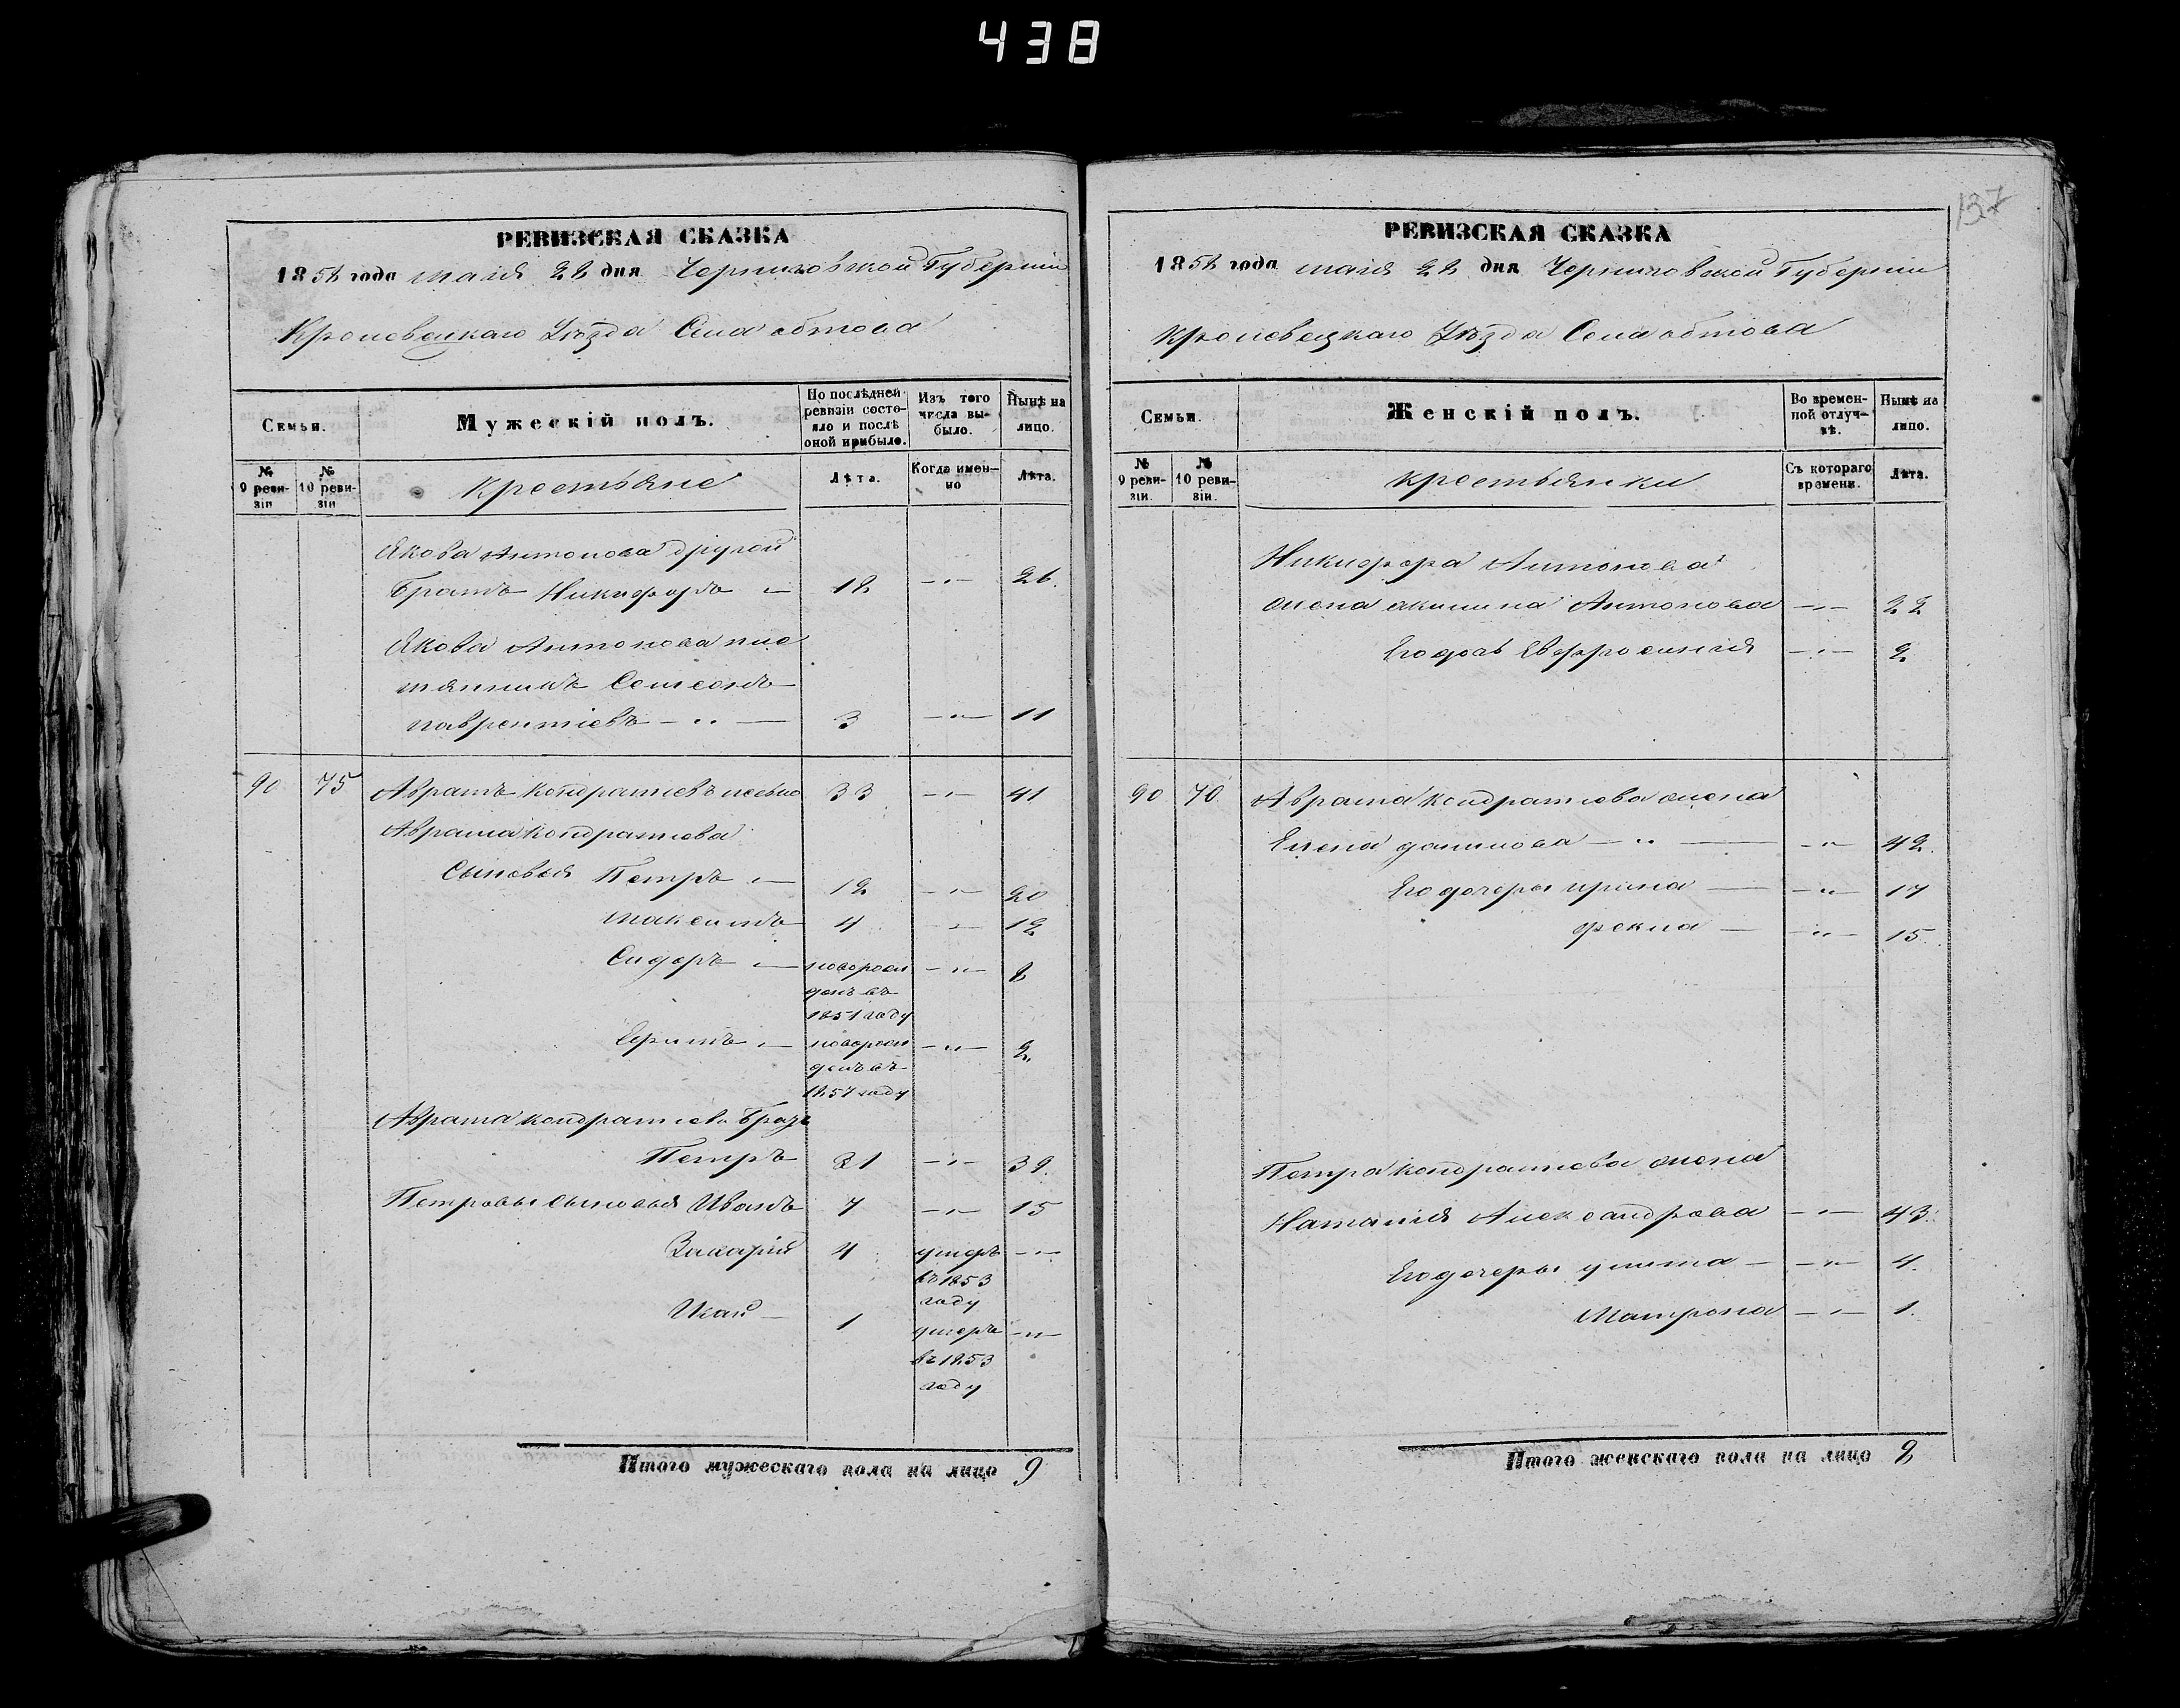 438
137
РЕВИЗСКАЯ СКАЗКА
1858 года маія 28 дня Черниговской Губерніи
Кролевецкаго Уѣзда Села обтова
Семьи.
Мужескій полъ.
По послѣдней ревизіи состояло и послѣ оной прибыло.
Изъ того числа выбыло.
Нынѣ на лицо.
№ 9 ревизіи
№ 10 ревизіи
крестьяне
Лѣта.
Когда именно
Лѣта.
Якова Антонова другой
Братъ Никифоръ 18 26.
Якова Антонова пле
мянникъ Семеонъ
лаврентіевъ 3 11
90 75 Аврамъ кондратіевъ 33 41
Аврама кондратіева
Сыновья Петръ 12 20
максимъ 4 12
Сидоръ новорож
денъ въ
1851 году 8
Ефимъ новорож
денъ въ
1857 году 2.
Аврама кондратіева братъ
Петръ 31 39.
Петровы сыновья Иванъ 7 15
Захарій 4 умеръ
въ 1853
году
1 умеръ
въ 1853
году
Итого мужескаго пола на лицо 9
РЕВИЗСКАЯ СКАЗКА
1858 года маія 28 дня Черниговской Губерніи
кролевецкаго Уѣзда Села обтова
Семьи.
Женскій полъ.
Во временной отлучкѣ.
Нынѣ на лицо.
№ 9 ревизіи.
№ 10 ревизіи.
крестьянки
Съ котораго времени.
Лѣта.
Никифора Антонова
жена акилина Антонова 22
Его дочь Евфросинія 2.
90 70 Аврама кондратіева жена
Елена данилова 42.
Его дочери ирина 17
фекла 15.
Петра кондратіева жена
Наталія Александрова 43.
Его дочери улита 4.
Матрона 1.
Итого женскаго пола на лицо 8